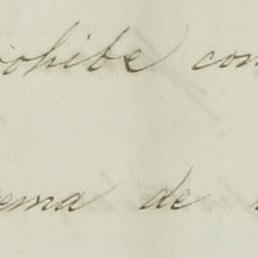 ohibe con
ema de